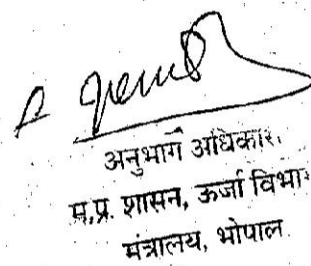 अनुभाग अधिकार
म.प्र. शासन, ऊर्जा विभा
मंत्रालय, भोपाल